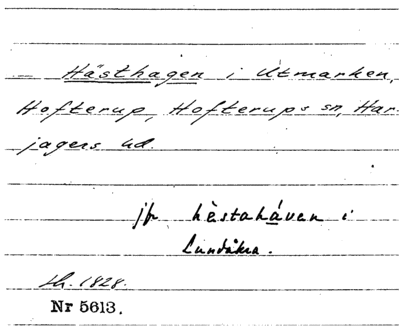 Hästhagen i Utmarken,
Hofterup, Hofterups sn, Har-
jagers hd.
jfr hèstahávan i
Lundåkra.
1828.
Nr 5613.